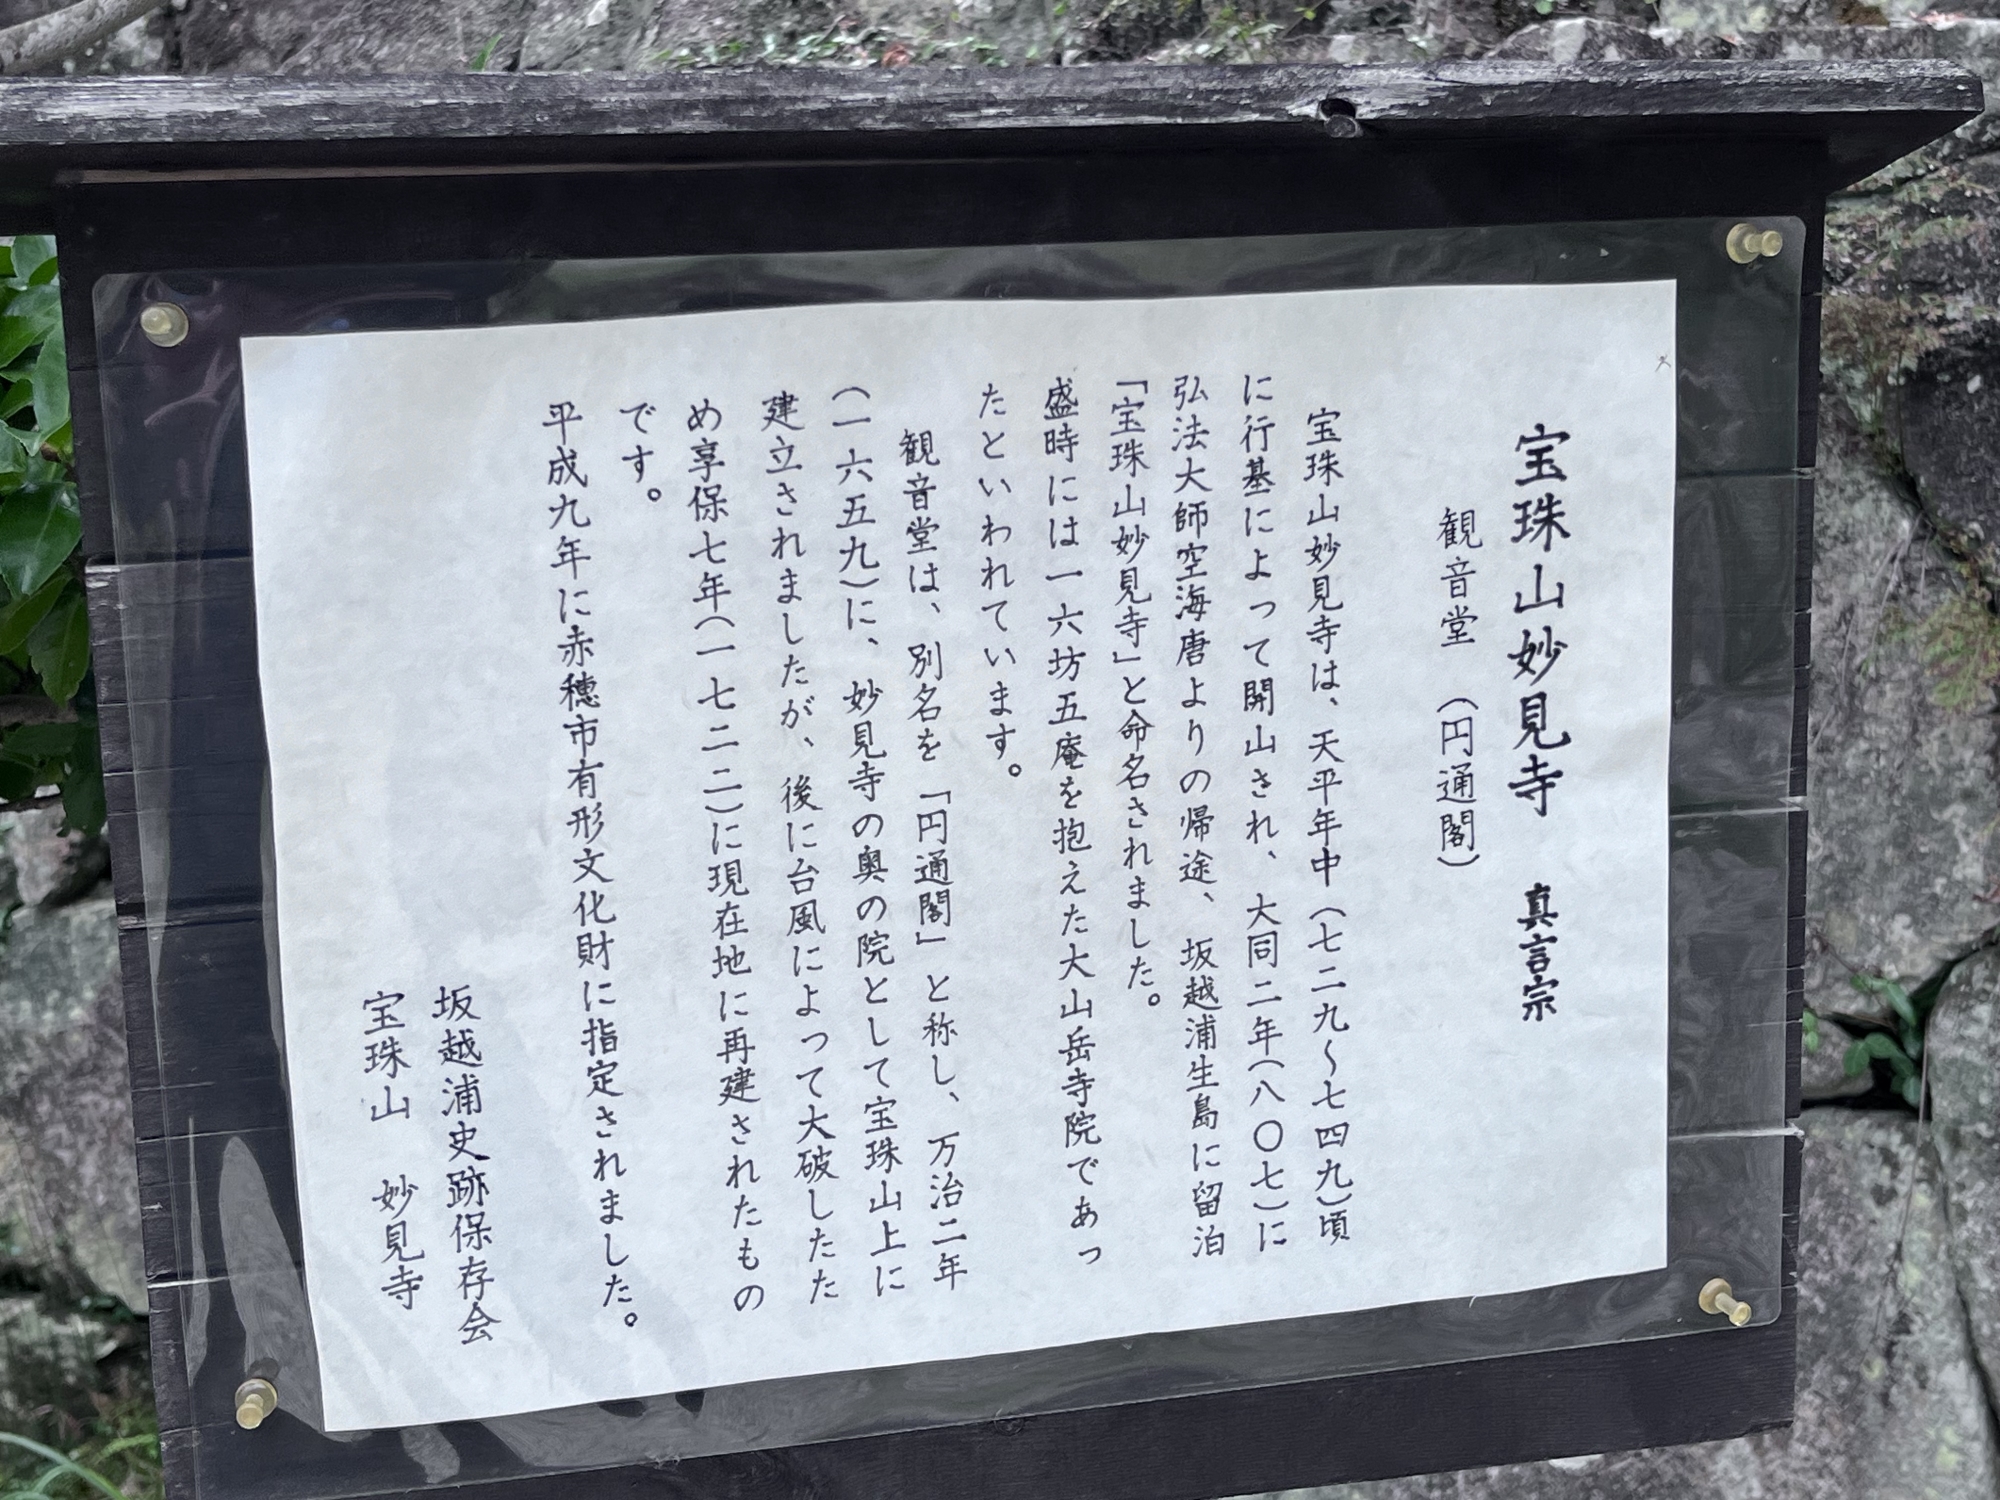 宝珠山妙見寺 真言宗
観音堂 (円通閣)
宝珠山妙見寺は、天平年中(七二九~七四九)頃
に行基によって開山され、大同二年(八〇七)に
弘法大師空海唐よりの帰途、坂越浦生島に留泊
「宝珠山妙見寺」と命名されました。
盛時には一六坊五庵を抱えた大山岳寺院であっ
たといわれています。
観音堂は、別名を「円通閣」と称し、万治二年
(一六五九)に、妙見寺の奥の院として宝珠山上に
建立されましたが、後に台風によって大破したた
め享保七年(一七二二)に現在地に再建されたもの
です。
平成九年に赤穂市有形文化財に指定されました。
坂越浦史跡保存会
宝珠山 妙見寺